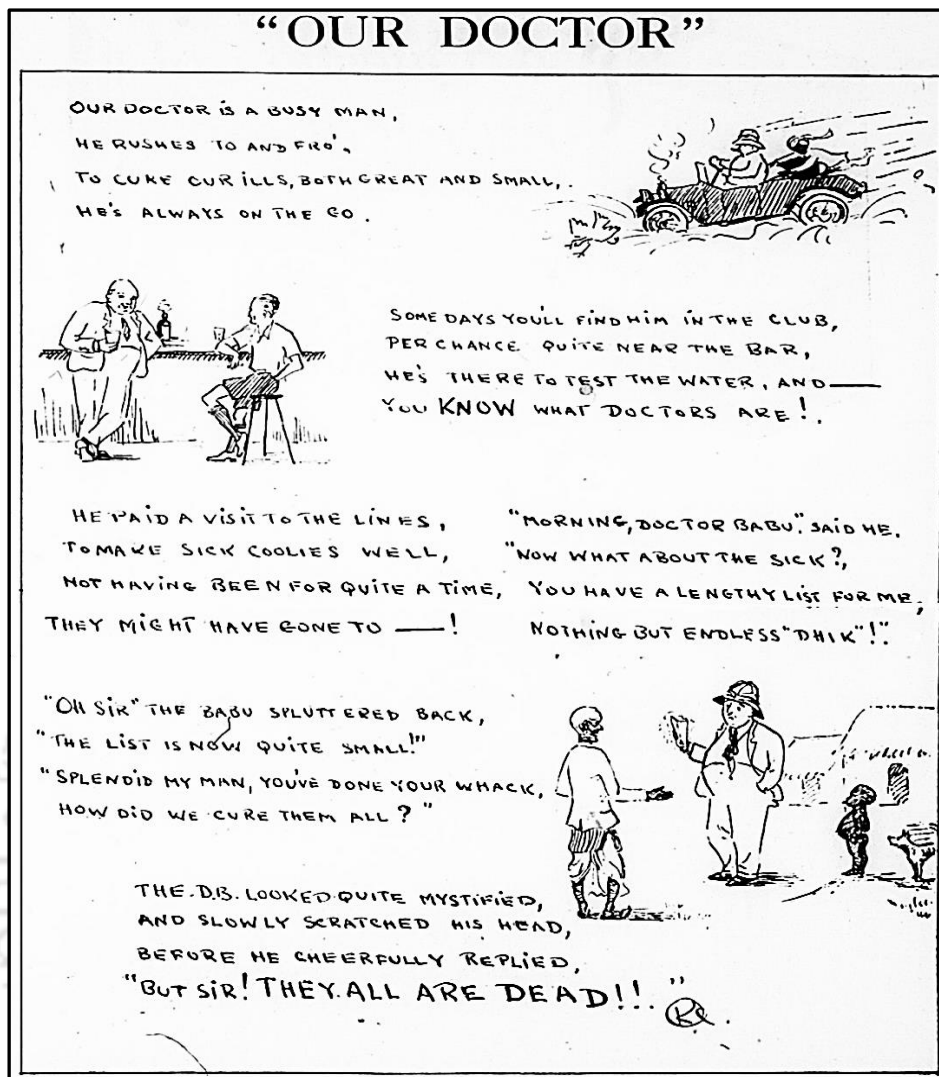 "OUR DOCTOR"
OUR DOCTOR IS A BUSY MAN,
HE RUSHES TO AND FRO',
TO CURE OUR ILLS, BOTH GREAT AND SMALL,
HE'S ALWAYS ON THE GO.
SOME DAYS YOU'LL FIND HIM IN THE CLUB,
PER CHANCE QUITE NEAR THE BAR,
HE'S THERE TO TEST THE WATER, AND——
YOU KNOW WHAT DOCTORS ARE!.
HE PAID A VISIT TO THE LINES,
TO MAKE SICK COOLIES WELL,
NOT HAVING BEEN FOR QUITE A TIME,
THEY MIGHT HAVE GONE TO ——!
"MORNING, DOCTOR BABU". SAID HE.
"NOW WHAT ABOUT THE SICK?,
YOU HAVE A LENGTHY LIST FOR ME,
NOTHING BUT ENDLESS "DHIK"!".
"OH SIR" THE BABU SPLUTTERED BACK,
"THE LIST IS NOW QUITE SMALL!"
"SPLENDID MY MAN, YOU'VE DONE YOUR WHACK,
HOW DID WE CURE THEM ALL?"
THE D.B. LOOKED QUITE MYSTIFIED,
AND SLOWLY SCRATCHED HIS HEAD,
BEFORE HE CHEERFULLY REPLIED,
"BUT SIR! THEY ALL ARE DEAD!!."